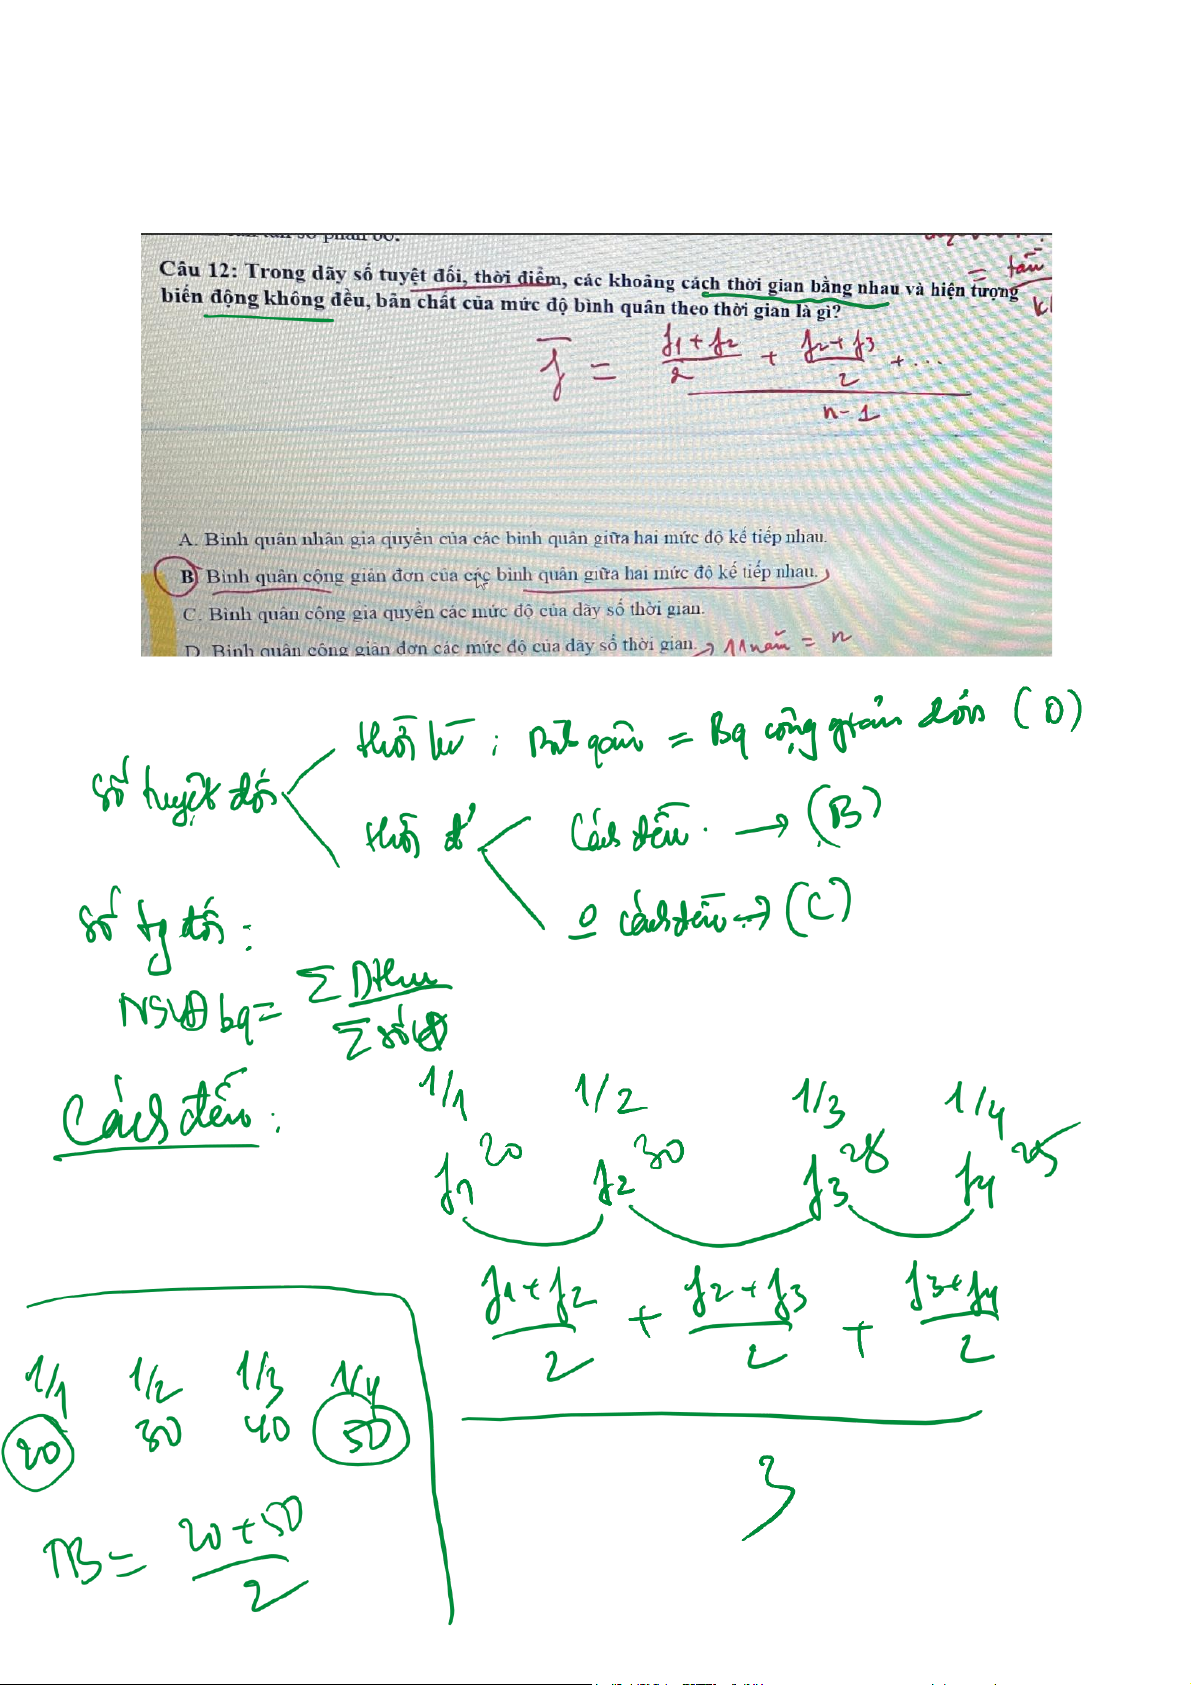 Câu 12: Trong dãy số tuyệt đối, thời điểm, các khoảng cách thời gian bằng nhau và hiện tượng
biến động không đều, bản chất của mức độ bình quân theo thời gian là gì?
= tần
y̅ = (y1 + y2)/2 + (y2 + y3)/2 + ...
n - 1
A. Bình quân nhân gia quyền của các bình quân giữa hai mức độ kế tiếp nhau.
B. Bình quân cộng giản đơn của các bình quân giữa hai mức độ kế tiếp nhau.
C. Bình quân cộng gia quyền các mức độ của dãy số thời gian.
D. Bình quân cộng giản đơn các mức độ của dãy số thời gian. = n
số tuyệt đối
thời kì : Bình quân = Bq cộng giản đơn (D)
thời đ'
Cách đều → (B)
0 cách đều → (C)
số tg đối :
NSLĐ bq = Σ Dthu / Σ số LĐ
Cách đều :
1/1 1/2 1/3 1/4
y1 20 y2 30 y3 28 y4 25
(y1 + y2)/2 + (y2 + y3)/2 + (y3 + y4)/2
3
1/1 1/2 1/3 1/4
20 30 40 50
TB = (20 + 50)/2